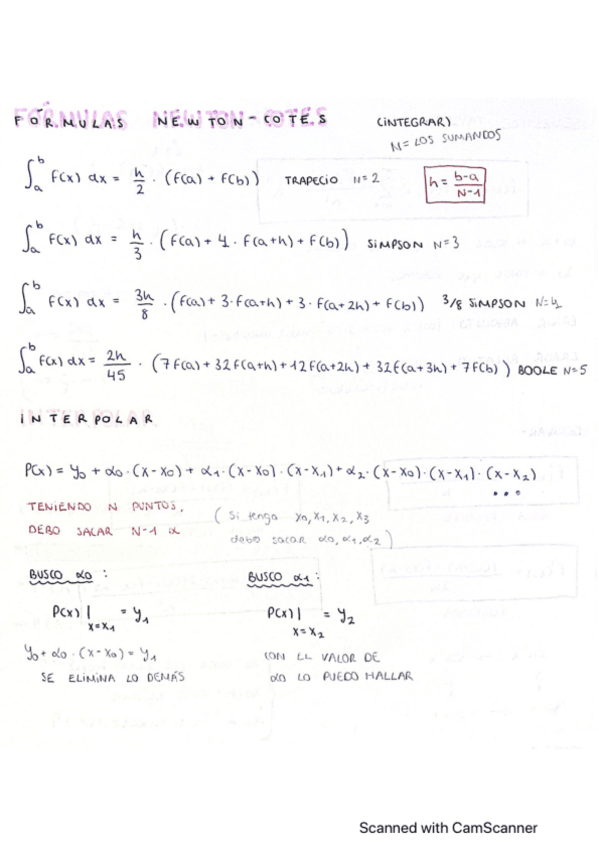 FÓRMULAS NEWTON-COTES (iNTEGRAR)
N = LOS SUMANDOS
∫ₐᵇ f(x) dx = h/2 · (f(a) + f(b)) TRAPECIO N=2 h = b-a/N-1
∫ₐᵇ f(x) dx = h/3 · (f(a) + 4 · f(a+h) + f(b)) SiMPSON N=3
∫ₐᵇ f(x) dx = 3h/8 · (f(a) + 3 · f(a+h) + 3 · f(a+2h) + f(b)) 3/8 SiMPSON N=4
∫ₐᵇ f(x) dx = 2h/45 · (7f(a) + 32f(a+h) + 12f(a+2h) + 32f(a+3h) + 7f(b)) BOOLE N=5
iNTERPOLAR
P(x) = y₀ + α₀ · (x-x₀) + α₁ · (x-x₀) · (x-x₁) + α₂ · (x-x₀) · (x-x₁) · (x-x₂)
...
TENIENDO N PUNTOS,
DEBO SACAR N-1 α
(Si tengo x₀, x₁, x₂, x₃
debo sacar α₀, α₁, α₂)
BUSCO α₀ :
P(x) | x=x₁ = y₁
y₀ + α₀ · (x-x₀) = y₁
SE ELIMINA LO DEMÁS
BUSCO α₁ :
P(x) | x=x₂ = y₂
CON EL VALOR DE
α₀ LO PUEDO HALLAR
Scanned with CamScanner